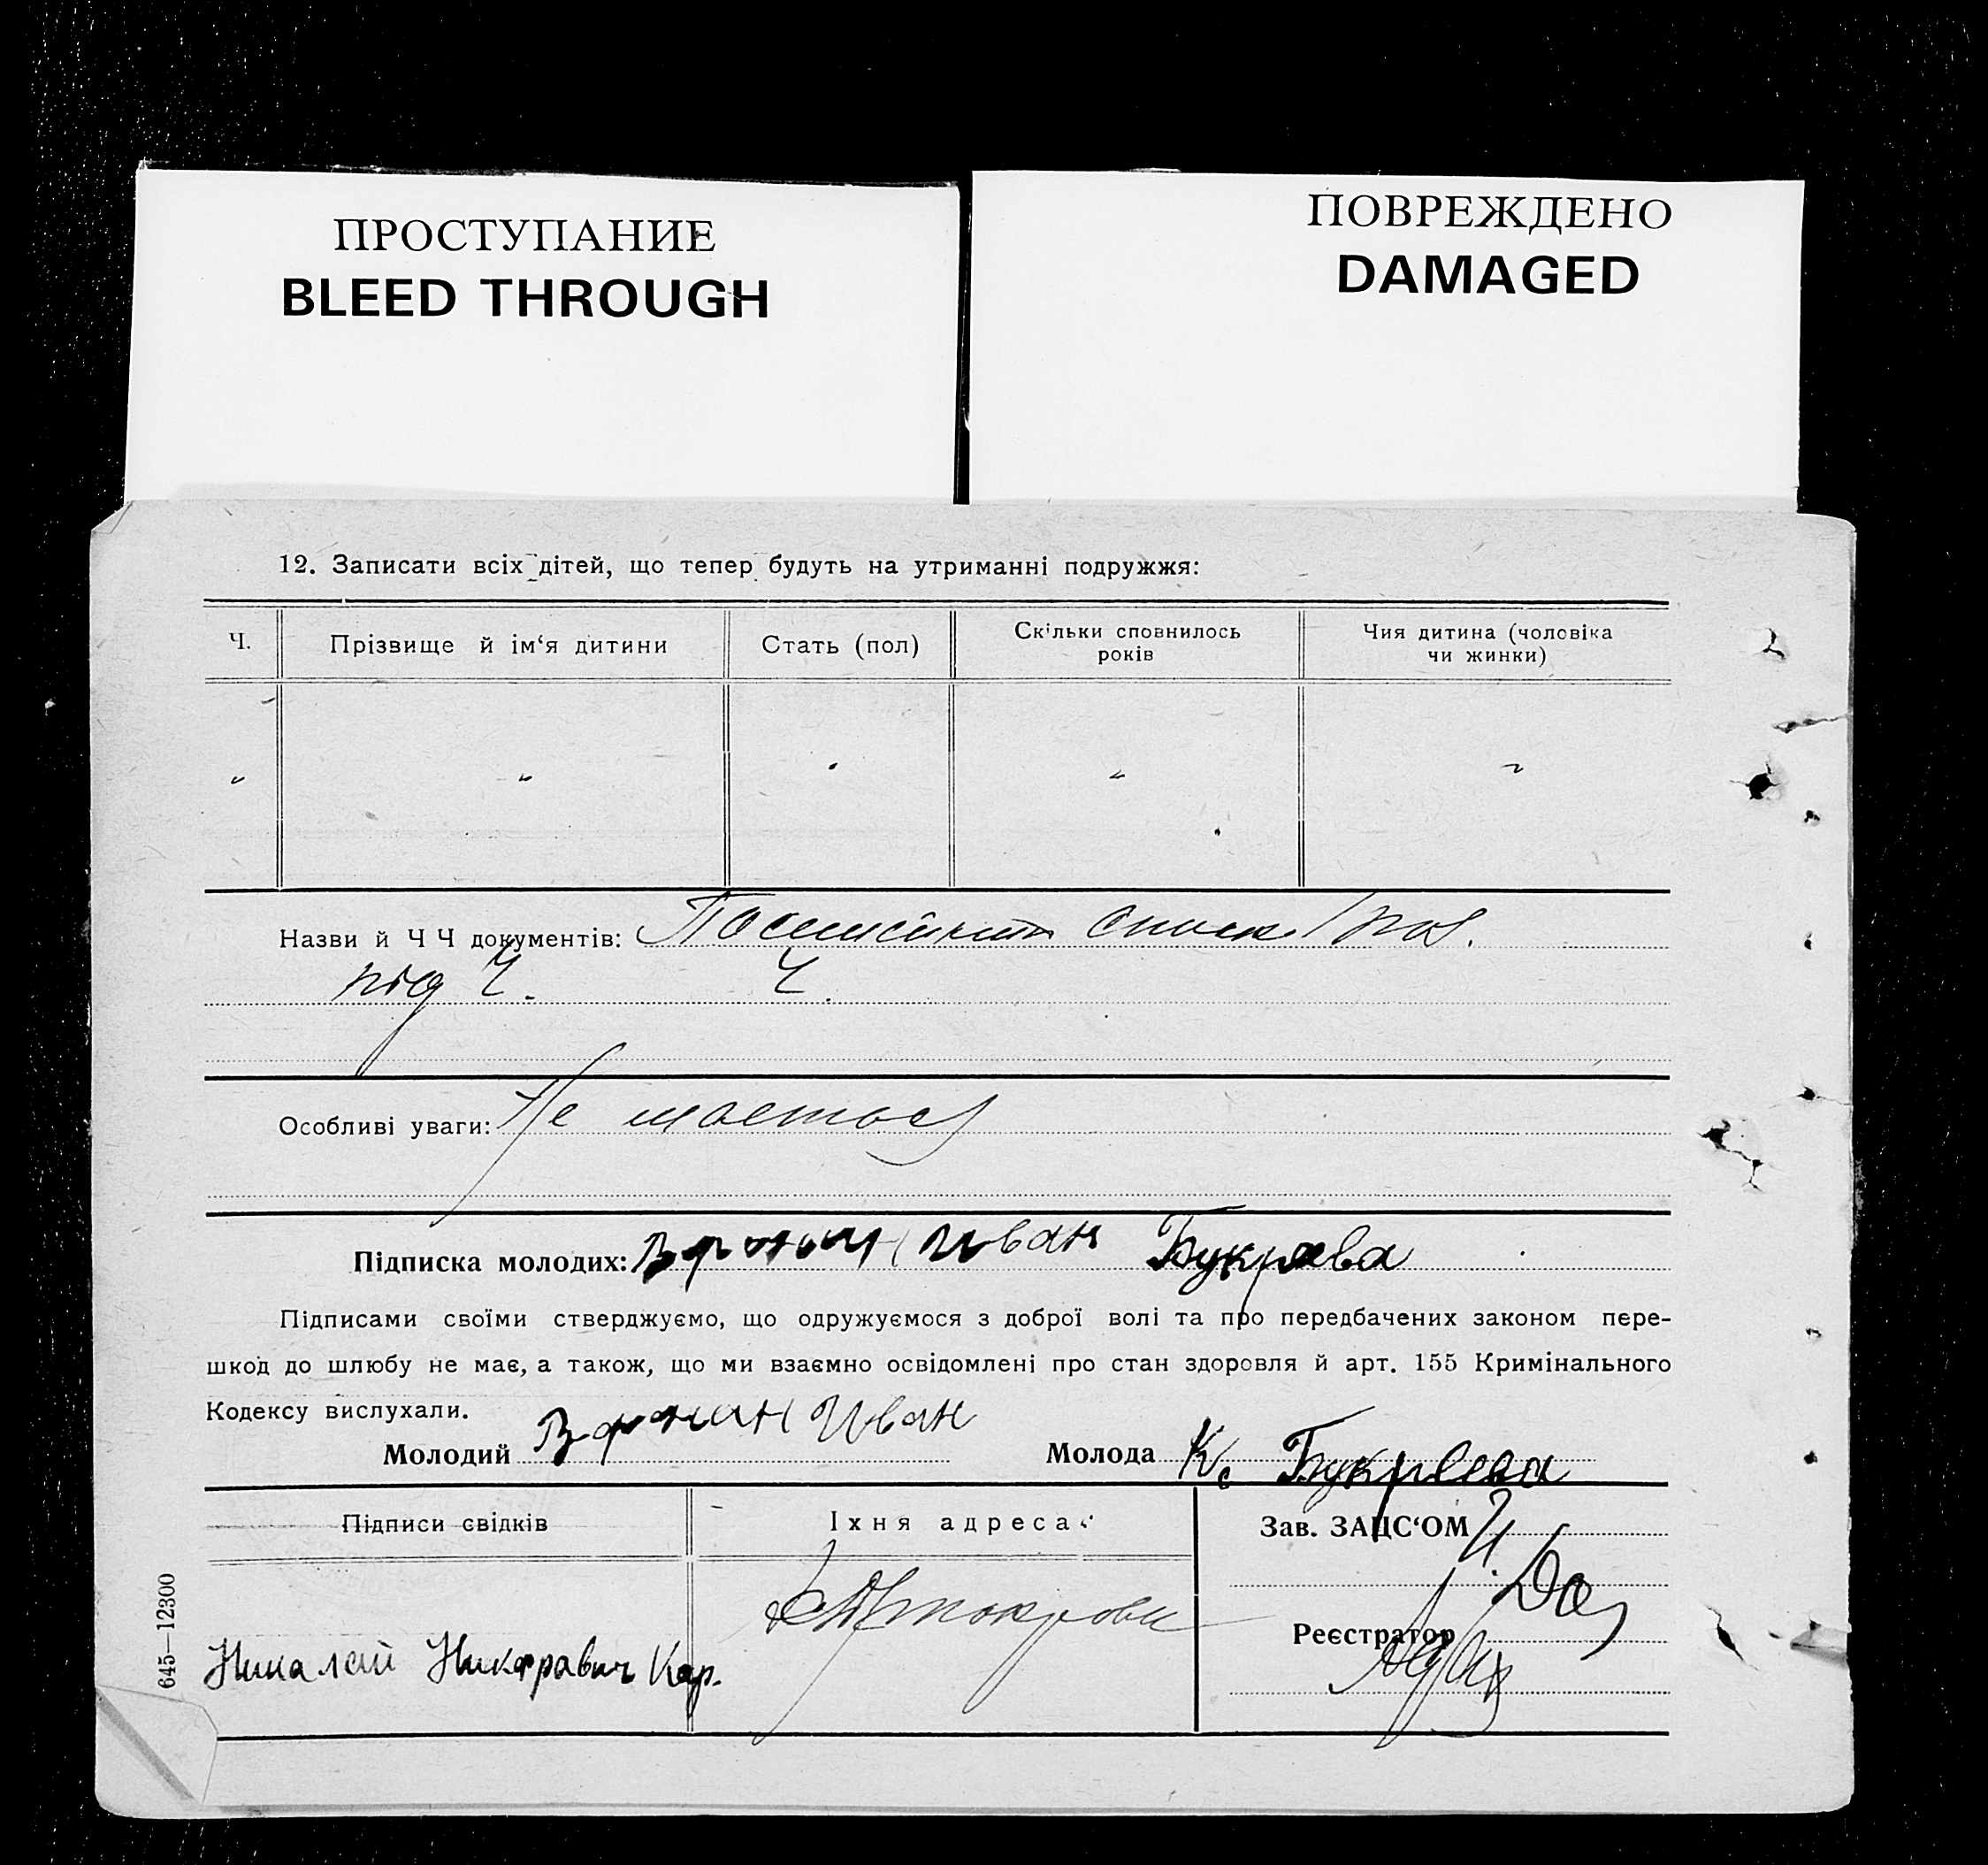 ПРОСТУПАНИЕ
BLEED THROUGH
ПОВРЕЖДЕНО
DAMAGED
12. Записати всіх дітей, що тепер будуть на утриманні подружжя:
Ч. Прізвище й ім‘я дитини Стать (пол) Скільки сповнилось років Чия дитина (чоловіка чи жинки)
" " " " "
Назви й ЧЧ документів:
під Ч. Ч.
Особливі уваги: Не мається
Підписка молодих: Иван Букрева
Підписами своїми стверджуємо, що одружуємося з доброї волі та про передбачених законом пере-
шкод до шлюбу не має, а також, що ми взаємно освідомлені про стан здоровля й арт. 155 Кримінального
Кодексу вислухали.
Молодий Иван Молода К. Букреева
Підписи свідків Їхня адреса: Зав. ЗАЦС‘ОМ
Реєстратор
Николай Кар.
645—12300